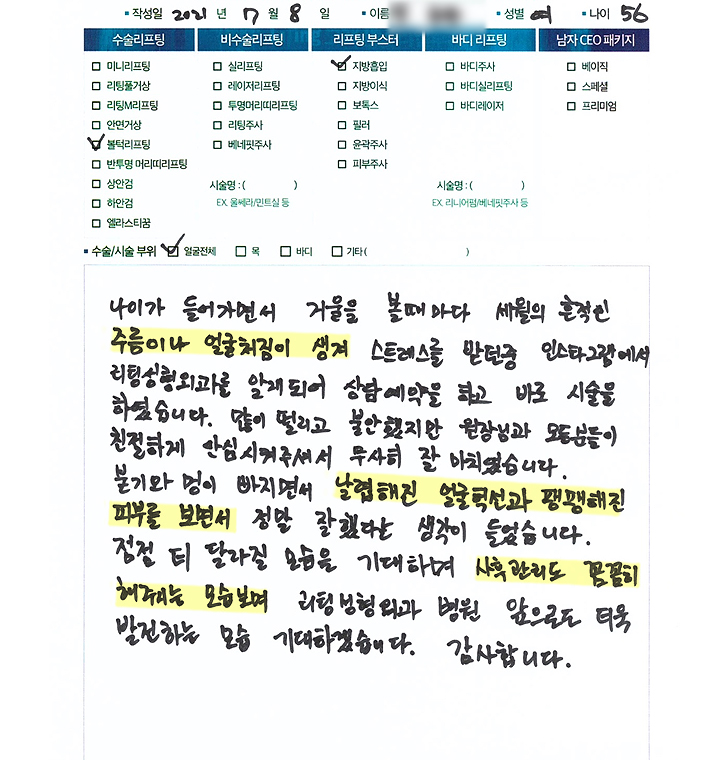 작성일 2021 년 7 월 8 일 이름 성별 여 나이 56
수술리프팅 비수술리프팅 리프팅 부스터 바디 리프팅 남자 CEO 패키지
미니리프팅 실리프팅 지방흡입 바디주사 베이직
리팅풀거상 레이저리프팅 지방이식 바디실리프팅 스페셜
리팅M리프팅 투명머리띠리프팅 보톡스 바디레이저 프리미엄
안면거상 리팅주사 필러
볼턱리프팅 베네핏주사 윤곽주사
반투명 머리띠리프팅 피부주사
상안검 시술명 : ( ) 시술명 : ( )
하안검 EX. 울쎄라/민트실 등 EX. 리니어펌/베네핏주사 등
엘라스티꿈
수술/시술 부위 얼굴전체 목 바디 기타 ( )
나이가 들어가면서 거울을 볼때마다 세월의 흔적인
주름이나 얼굴처짐이 생겨 스트레스를 받던중 인스타그램에서
리팅성형외과를 알게되어 상담예약을 하고 바로 시술을
하였습니다. 많이 떨리고 불안했지만 원장님과 모든분들이
친절하게 안심시켜주셔서 무사히 잘 마치었습니다.
붓기와 멍이 빠지면서 날렵해진 얼굴턱선과 팽팽해진
피부를 보면서 정말 잘했다는 생각이 들었습니다.
점점 더 달라질 모습을 기대하며 사후관리도 꼼꼼히
해주시는 모습보며 리팅성형외과 병원 앞으로도 더욱
발전하는 모습 기대하겠습니다. 감사합니다.